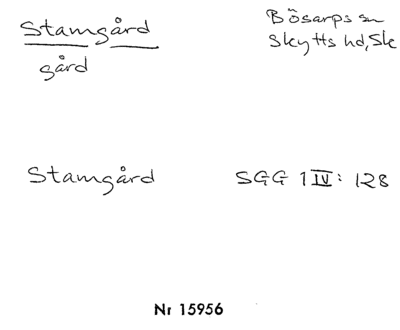 Stamgård
Bösarps sn
gård
Skytts hd, Sk
Stamgård
SGG 1 IV: 128
Nr 15956